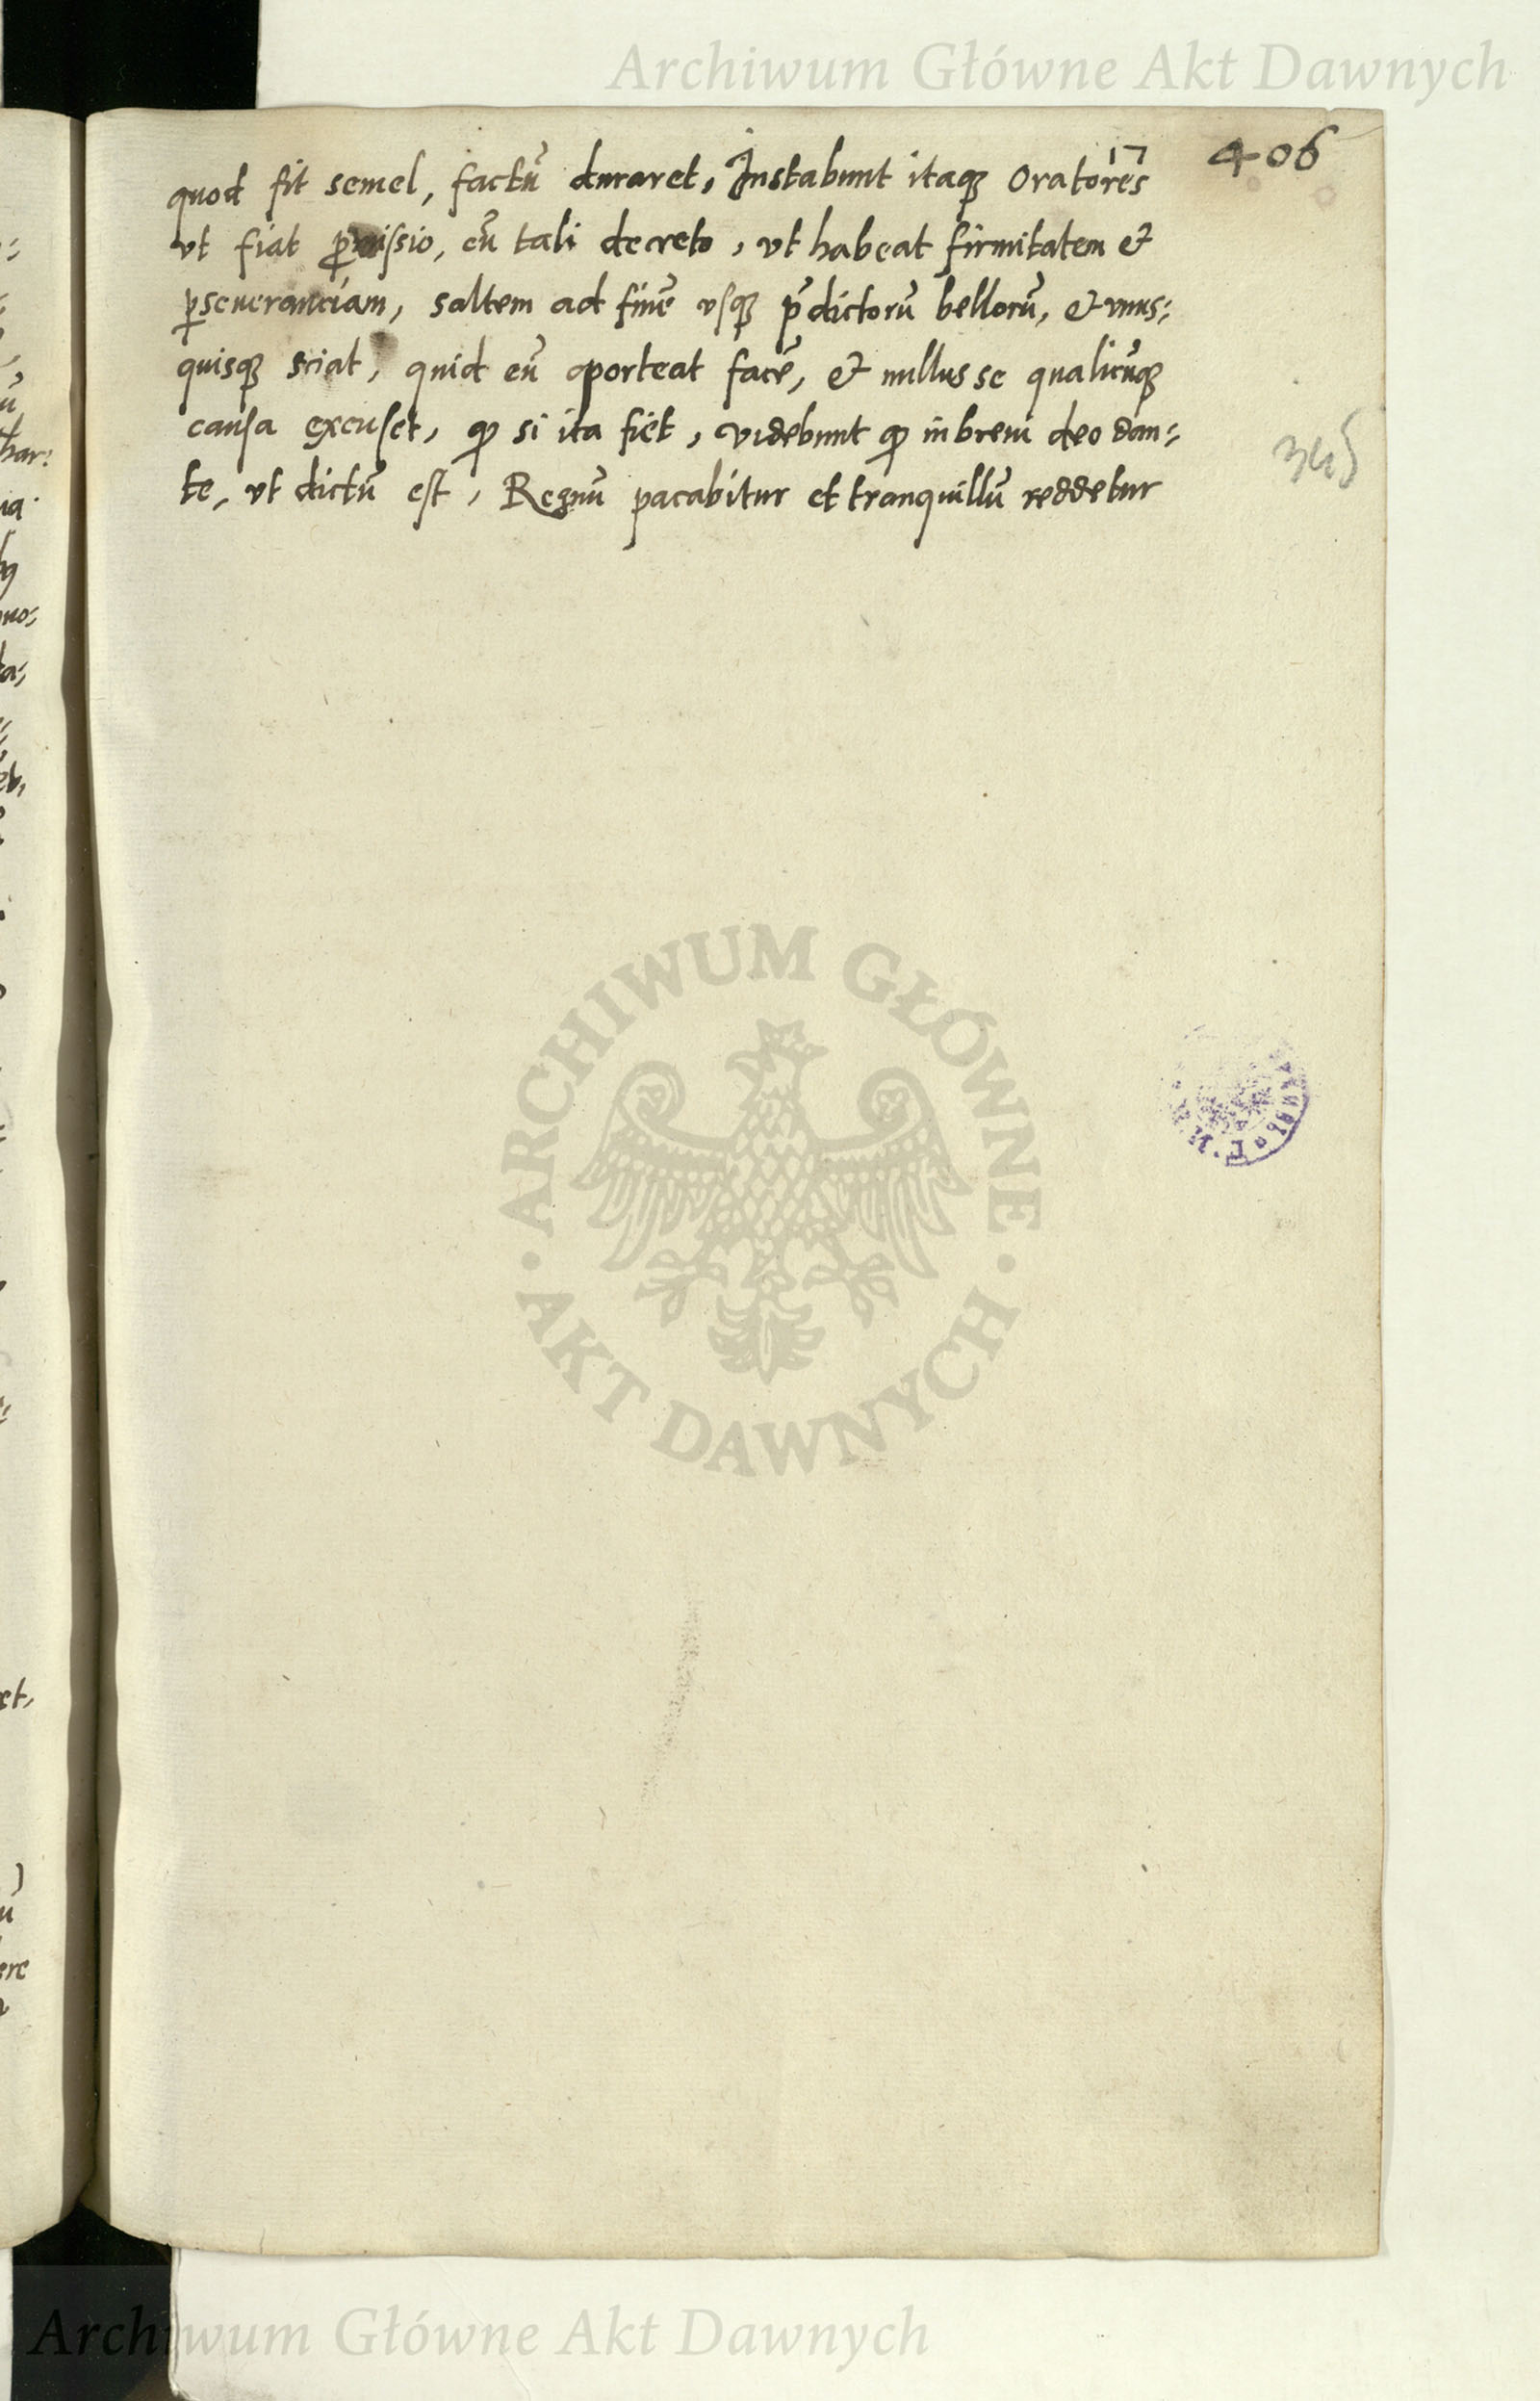 Archiwum Główne Akt Dawnych
17 406
quod fit semel, factũ duraret, Instabunt itaqꝫ Oratores
vt fiat ꝓuisio, cũ tali decreto, vt habeat firmitatem &
ꝑseueranciam, saltem ad finẽ vsqꝫ p̃dictorũ bellorũ, & vnus:
quisqꝫ sciat, quid eũ oporteat facẽ, & nullus se qualicũqꝫ
causa excuset, ꝙ si ita fiet, videbunt ꝙ in breui deo dan:
te, vt dictũ est, Regnũ pacabitur et tranquillũ reddetur
ARCHIWUM GŁÓWNE
AKT DAWNYCH
Archiwum Główne Akt Dawnych